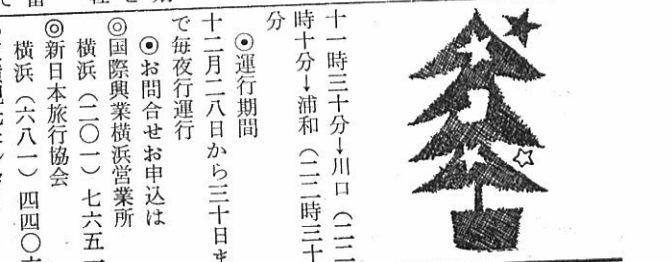 十一時三十分→川口（二二
時十分→浦和（二二時三十
分
⦿運行期間
十二月二八日から三十日ま
で毎夜行運行
⦿お問合せお申込は
◎国際興業横浜営業所
横浜（二〇一）七六五一
◎新日本旅行協会
横浜（六八一）四四〇